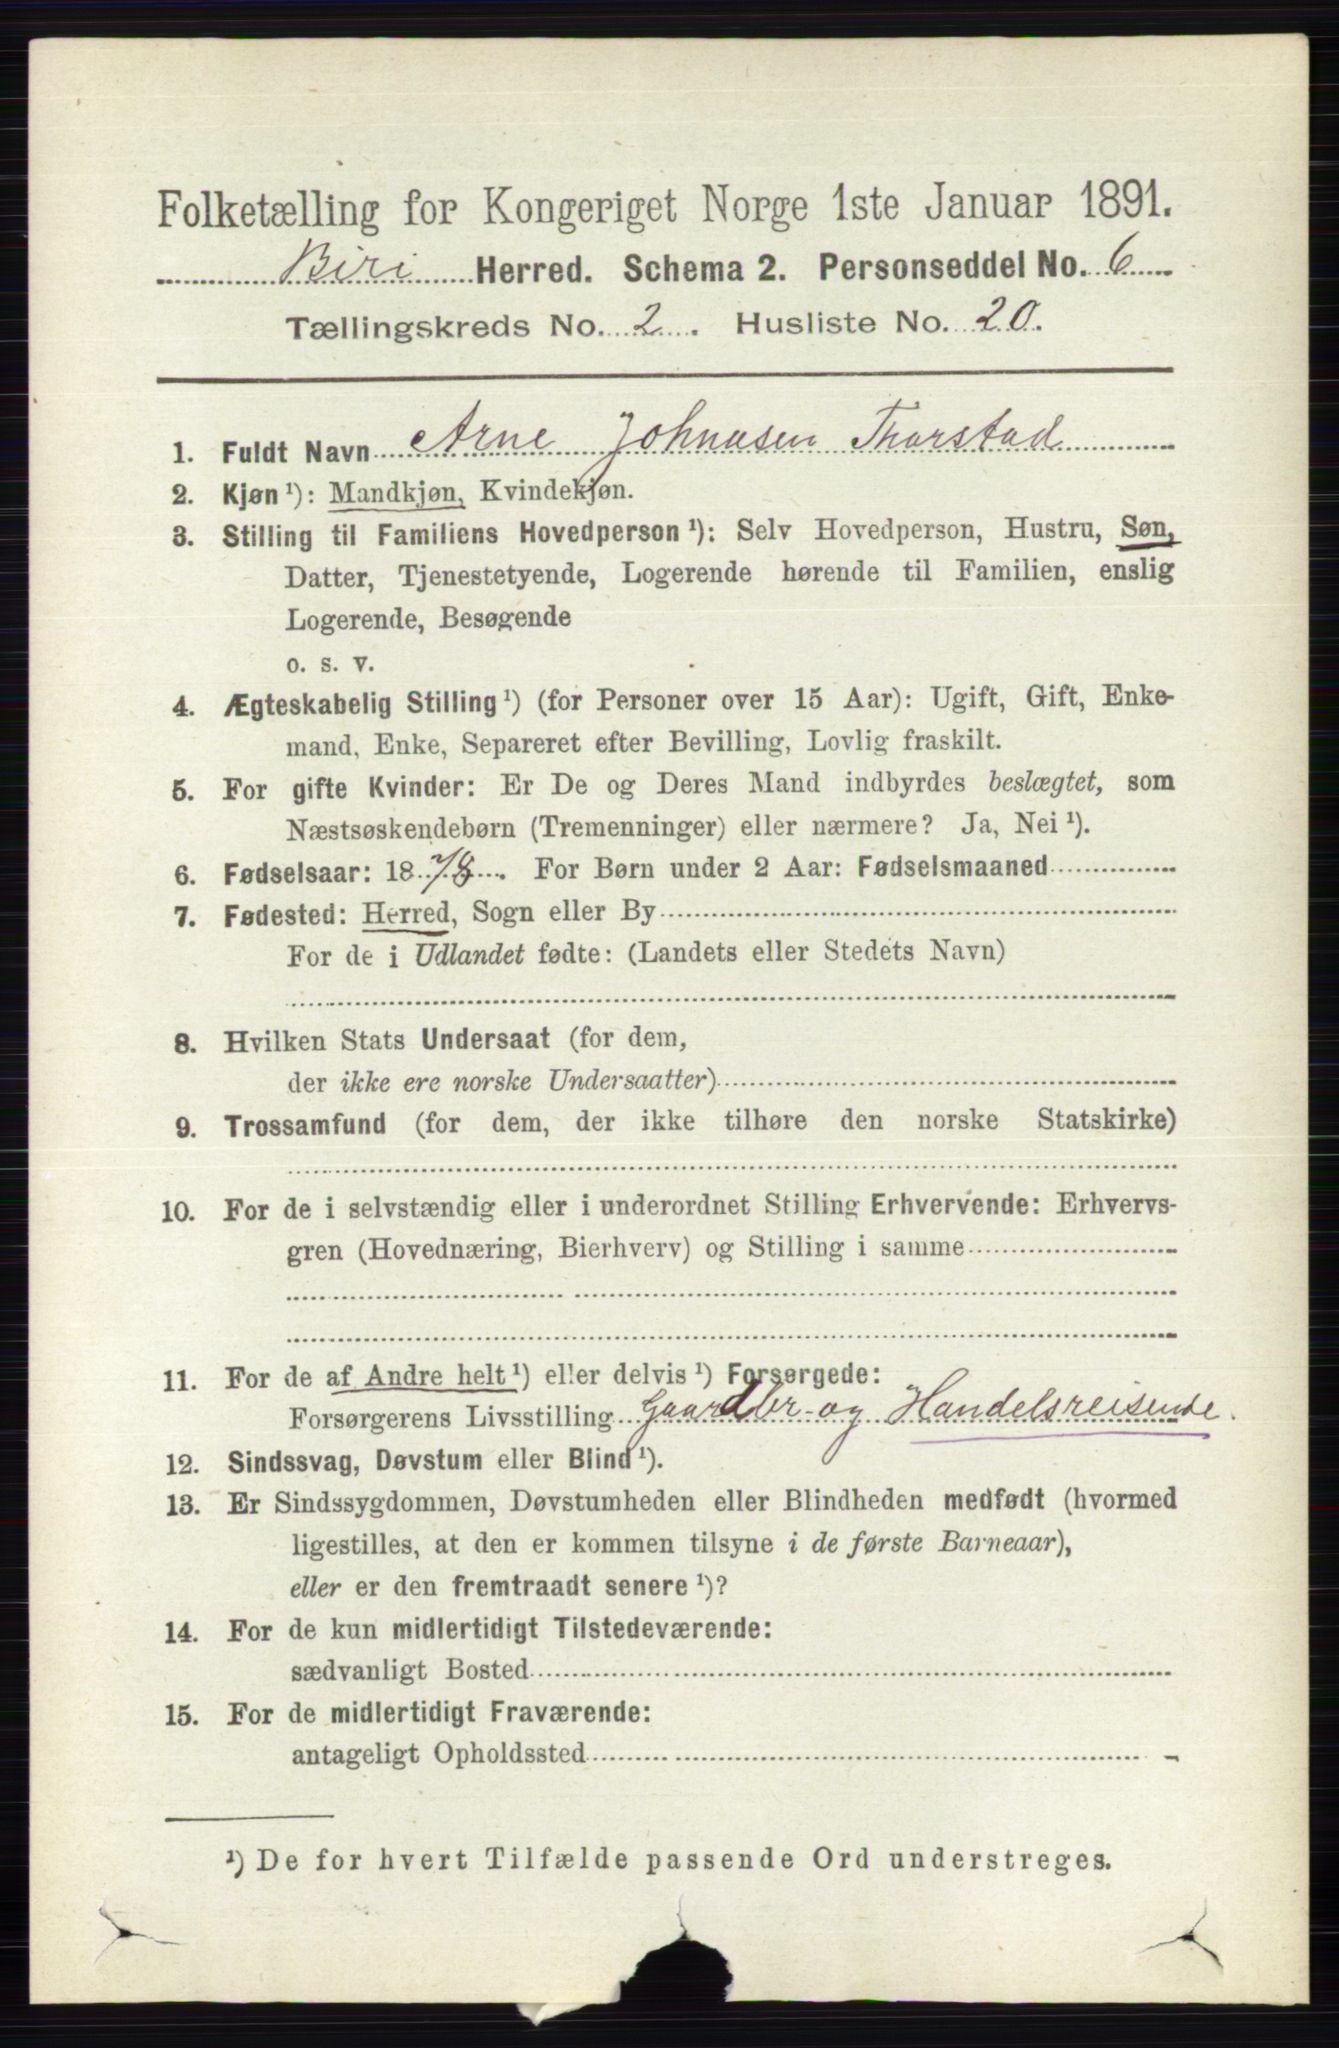 Folketælling for Kongeriget Norge 1ste Januar 1891.
Biri Herred. Schema 2. Personseddel No. 6
Tællingskreds No. 2. Husliste No. 20.
1. Fuldt Navn Arne Johnasen Thorstad
2. Kjøn ¹): Mandkjøn, Kvindekjøn.
3. Stilling til Familiens Hovedperson ¹): Selv Hovedperson, Hustru, Søn,
Datter, Tjenestetyende, Logerende hørende til Familien, enslig
Logerende, Besøgende
o. s. v.
4. Ægteskabelig Stilling ¹) (for Personer over 15 Aar): Ugift, Gift, Enke-
mand, Enke, Separeret efter Bevilling, Lovlig fraskilt.
5. For gifte Kvinder: Er De og Deres Mand indbyrdes beslægtet, som
Næstsøskendebørn (Tremenninger) eller nærmere? Ja, Nei ¹).
6. Fødselsaar: 1878. For Børn under 2 Aar: Fødselsmaaned
7. Fødested: Herred, Sogn eller By
For de i Udlandet fødte: (Landets eller Stedets Navn)
8. Hvilken Stats Undersaat (for dem,
der ikke ere norske Undersaatter)
9. Trossamfund (for dem, der ikke tilhøre den norske Statskirke)
10. For de i selvstændig eller i underordnet Stilling Erhvervende: Erhvervs-
gren (Hovednæring, Bierhverv) og Stilling i samme
11. For de af Andre helt ¹) eller delvis ¹) Forsørgede:
Forsørgerens Livsstilling Gaardbr- og Handelsreisende.
12. Sindssvag, Døvstum eller Blind ¹).
13. Er Sindssygdommen, Døvstumheden eller Blindheden medfødt (hvormed
ligestilles, at den er kommen tilsyne i de første Barneaar),
eller er den fremtraadt senere ¹)?
14. For de kun midlertidigt Tilstedeværende:
sædvanligt Bosted
15. For de midlertidigt Fraværende:
antageligt Opholdssted
¹) De for hvert Tilfælde passende Ord understreges.